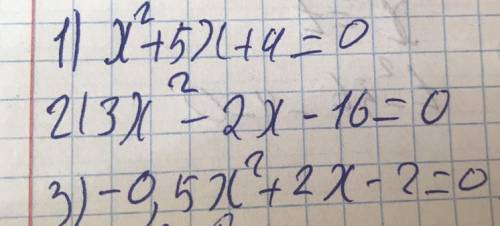 1) x²+5x+4=0
2) 3x²-2x-16=0
3) -0,5x²+2x-2=0